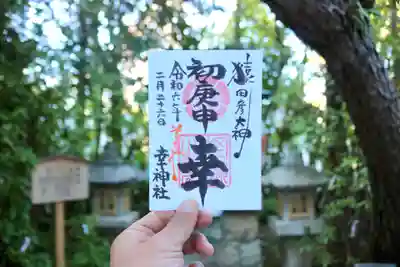 猿田彦大神
初庚申
幸
令和六年
二月二十六日
幸神社